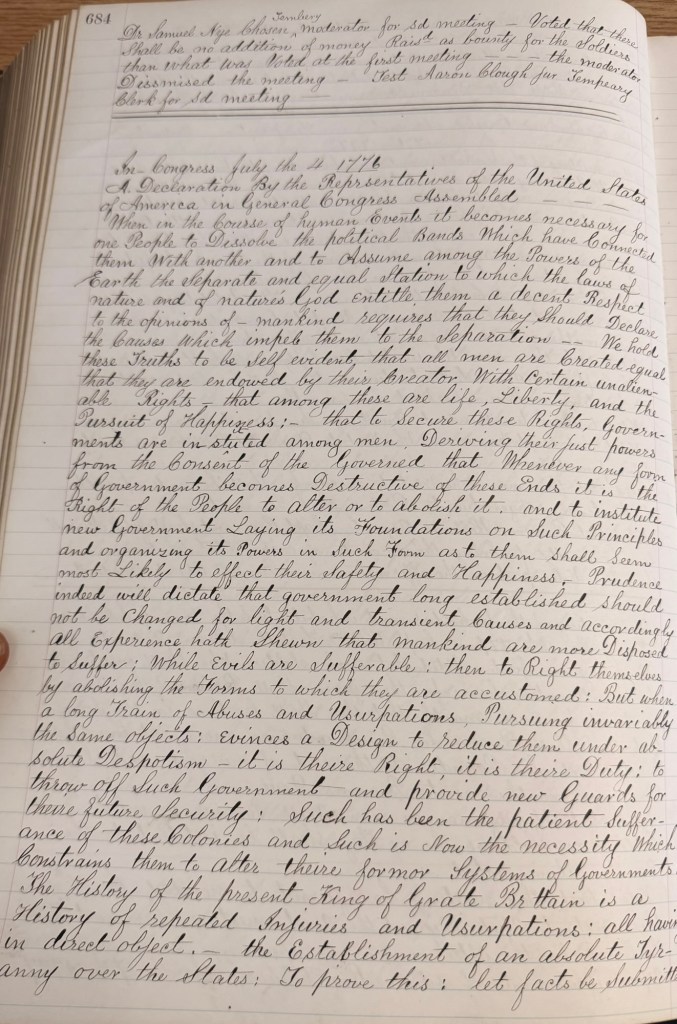 684
Tembery
Dr Samuel Nye Chosen, moderator for sd meeting – Voted that there
Shall be no addetion of money Raisd as bounty for the Soldiers
than what was Voted at the first meeting – – – the moderator
Dissmised the meeting – Test Aaron Clough jur Tempeary
Clerk for sd meeting –
In Congress July the 4 1776
A. Declaration By the Reprsentatives of the United States
of America in General Congress Assembled – – –
When in the Course of human Events it becomes necessary for
one People to Dissolve the political Bands Which have Connected
them With another and to Assume among the Powers of the
Earth the Separate and equal Station to which the laws of
nature and of nature's God entitle, them a decent Respect
to the opinions of – mankind requires that they Should Declare
the Causes which impels them to the Separation – – We hold
these Truths to be Self evident, that all men are Created equal
that they are endowed by their Creator With Certain unalien-
able Rights – that among these are life, Liberty, and the
Pursuit of Happiness; – that to Secure these Rights, Govern-
ments are in stuted among men, Deriving their Just powers
from the Consent of the Governed that Whenever any form
of Government becomes Destructive of these Ends it is the
Right of the People to alter or to abolish it. and to institute
new Government Laying its Foundations on Such Principles
and organizing its Powers in Such Form as to them Shall Seem
most Likely to effect their Safety and Happiness. Prudence
indeed will dictate that government long established should
not be Changed for light and transient Causes and accordingly
all Experience hath Shewn that mankind are more Disposed
to Suffer; While Evils are Sufferable: then to Right themselves
by abolishing the Forms to which they are accustomed: But when
a long Train of Abuses and Usurpations, Pursuing invariably
the Same objects: evinces a Design to reduce them under ab-
solute Despotism – it is theire Right, it is theire Duty; to
throw off Such Government and provide new Guards for
theire future Security; Such has been the patient Suffer-
ance of these Colonies and Such is Now the necessity Which
Constrains them to alter theire formor Systems of Governments.
The History of the present King of Grate Brttain is a
History of repeated Injuries and Usurpations: all havin
in direct object. – the Establishment of an absolute Tyr-
anny over the States; To prove this: let facts be Submitt